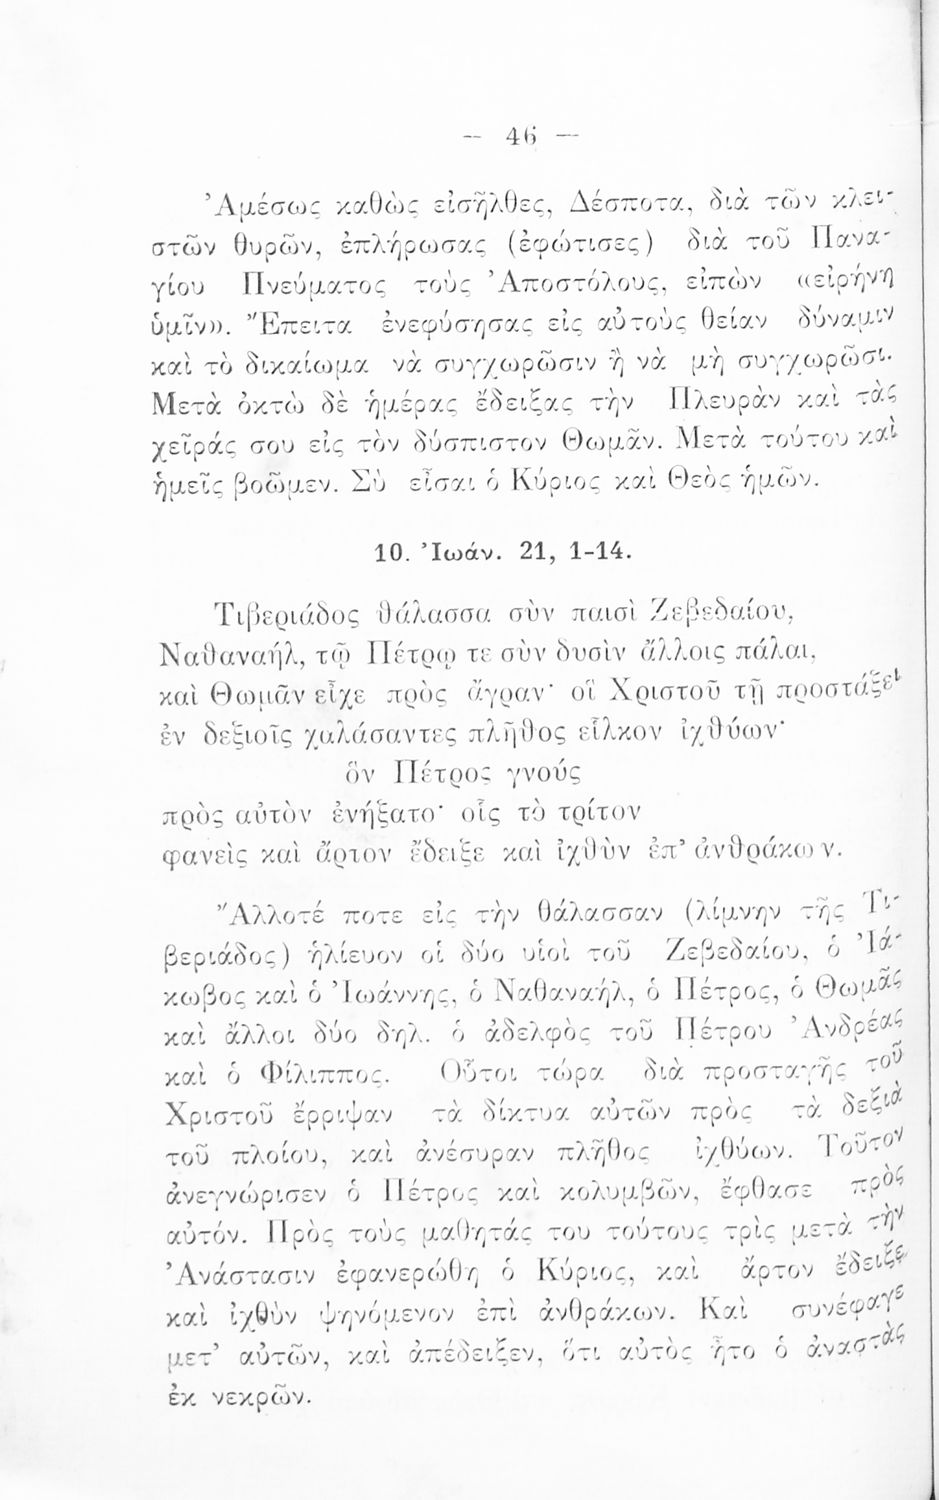 — 46 —
Ἀμέσως καθὼς εἰσῆλθες, Δέσποτα, διὰ τῶν κλει-
στῶν θυρῶν, ἐπλήρωσας (ἐφώτισες) διὰ τοῦ Πανα-
γίου Πνεύματος τοὺς Ἀποστόλους, εἰπὼν «εἰρήνη
ὑμῖν». Ἔπειτα ἐνεφύσησας εἰς αὐτοὺς θείαν δύναμιν
καὶ τὸ δικαίωμα νὰ συγχωρῶσιν ἢ νὰ μὴ συγχωρῶσι.
Μετὰ ὀκτὼ δὲ ἡμέρας ἔδειξας τὴν Πλευρὰν καὶ τὰς
χεῖράς σου εἰς τὸν δύσπιστον Θωμᾶν. Μετὰ τούτου καὶ
ἡμεῖς βοῶμεν. Σὺ εἶσαι ὁ Κύριος καὶ Θεὸς ἡμῶν.
10. Ἰωάν. 21, 1-14.
Τιβεριάδος θάλασσα σὺν παισὶ Ζεβεδαίου,
Ναθαναήλ, τῷ Πέτρῳ τε σὺν δυσὶν ἄλλοις πάλαι,
καὶ Θωμᾶν εἶχε πρὸς ἄγραν· οἳ Χριστοῦ τῇ προστάξει
ἐν δεξιοῖς χαλάσαντες πλῆθος εἷλκον ἰχθύων·
ὃν Πέτρος γνούς
πρὸς αὐτὸν ἐνήξατο· οἷς τὸ τρίτον
φανεὶς καὶ ἄρτον ἔδειξε καὶ ἰχθὺν ἐπ' ἀνθράκων.
Ἄλλοτέ ποτε εἰς τὴν θάλασσαν (λίμνην τῆς Τι-
βεριάδος) ἡλίευον οἱ δύο υἱοὶ τοῦ Ζεβεδαίου, ὁ Ἰά-
κωβος καὶ ὁ Ἰωάννης, ὁ Ναθαναήλ, ὁ Πέτρος, ὁ Θωμᾶς
καὶ ἄλλοι δύο δηλ. ὁ ἀδελφὸς τοῦ Πέτρου Ἀνδρέας
καὶ ὁ Φίλιππος. Οὗτοι τώρα διὰ προσταγῆς τοῦ
Χριστοῦ ἔρριψαν τὰ δίκτυα αὐτῶν πρὸς τὰ δεξιὰ
τοῦ πλοίου, καὶ ἀνέσυραν πλῆθος ἰχθύων. Τοῦτον
ἀνεγνώρισεν ὁ Πέτρος καὶ κολυμβῶν, ἔφθασε πρὸς
αὐτόν. Πρὸς τοὺς μαθητάς του τούτους τρὶς μετὰ τὴν
Ἀνάστασιν ἐφανερώθη ὁ Κύριος, καὶ ἄρτον ἔδειξε
καὶ ἰχθὺν ψηνόμενον ἐπὶ ἀνθράκων. Καὶ συνέφαγε
μετ' αὐτῶν, καὶ ἀπέδειξεν, ὅτι αὐτὸς ἦτο ὁ ἀναστὰς
ἐκ νεκρῶν.